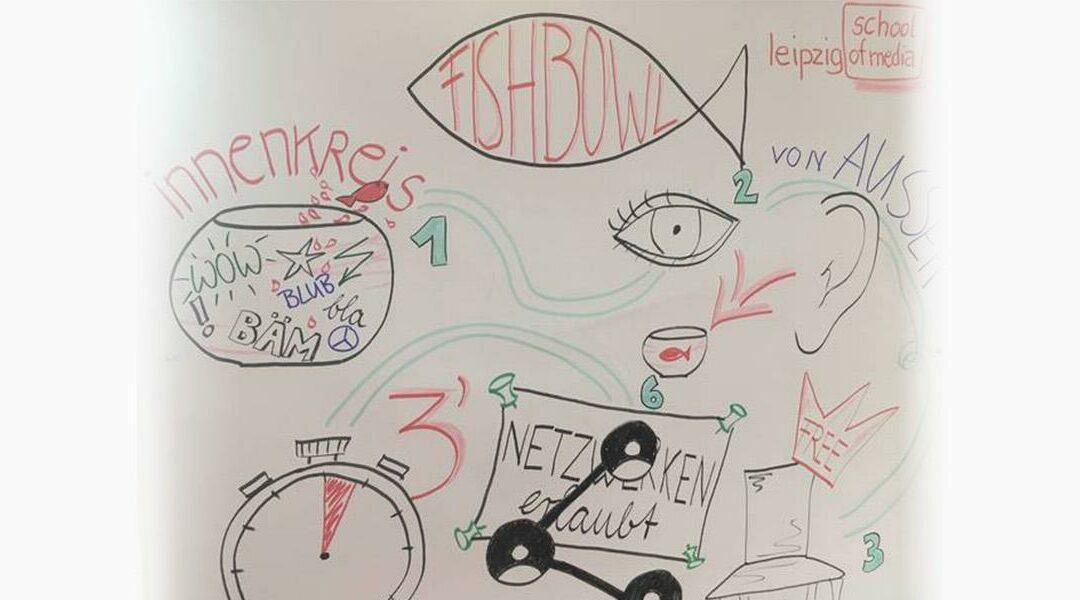 FISHBOWL
leipzig school
of media
innenkreis
1
WOW
BLUB
bla
!!
BÄM
2
VON AUSSEN
3'
6
NETZWERKEN
erlaubt
FREE
3